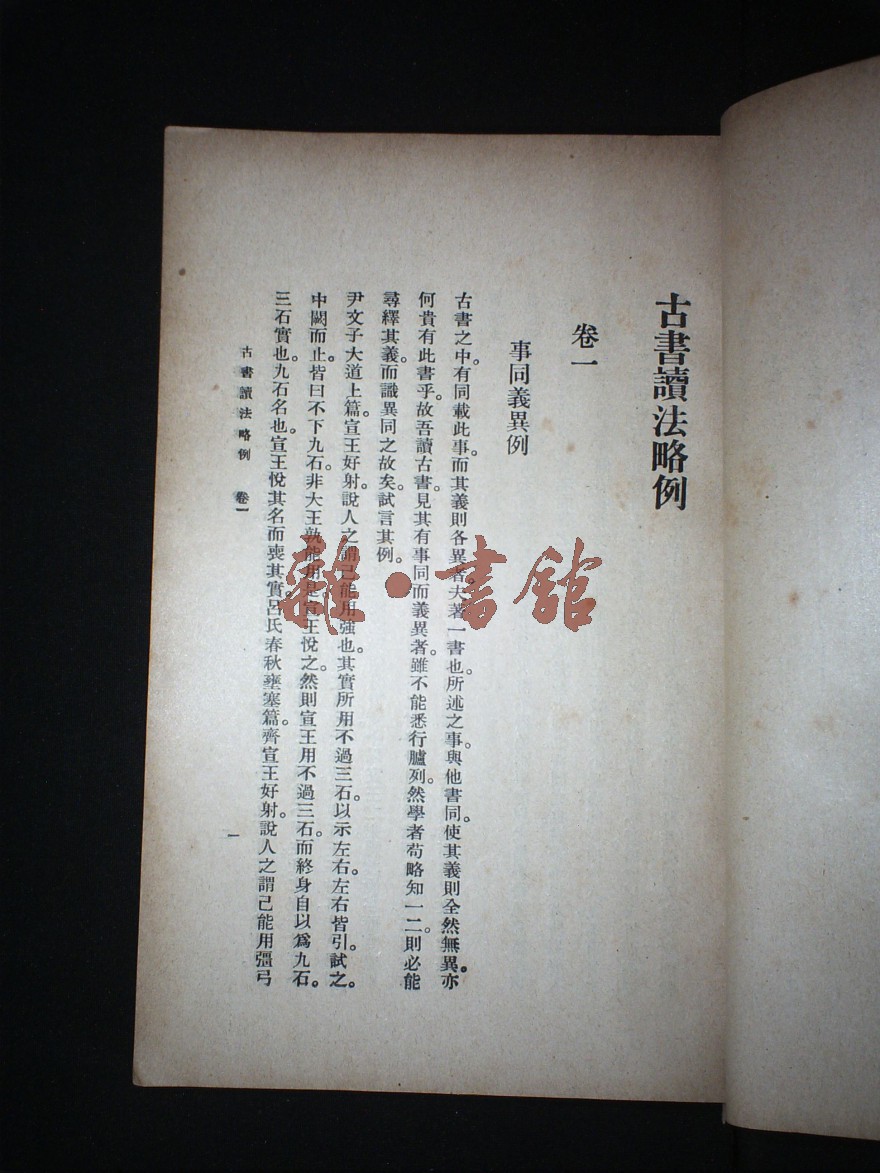 古書讀法略例
卷一
事同義異例
古書之中。有同載此事。而其義則各異者。夫著一書也。所述之事。與他書同。使其義則全然無異。亦
何貴有此書乎。故吾讀古書。見其有事同而義異者。雖不能悉行臚列。然學者苟略知一二。則必能
尋繹其義。而識異同之故矣。試言其例。
尹文子大道上篇。宣王好射。說人之謂己能用強也。其實所用不過三石。以示左右。左右皆引。試之。
中闕而止。皆曰不下九石。非大王孰能用是。宣王悅之。然則宣王用不過三石。而終身自以爲九石。
三石實也。九石名也。宣王悅其名而喪其實。呂氏春秋壅塞篇。齊宣王好射。說人之謂己能用彊弓
古書讀法略例 卷一
一
雜·書館